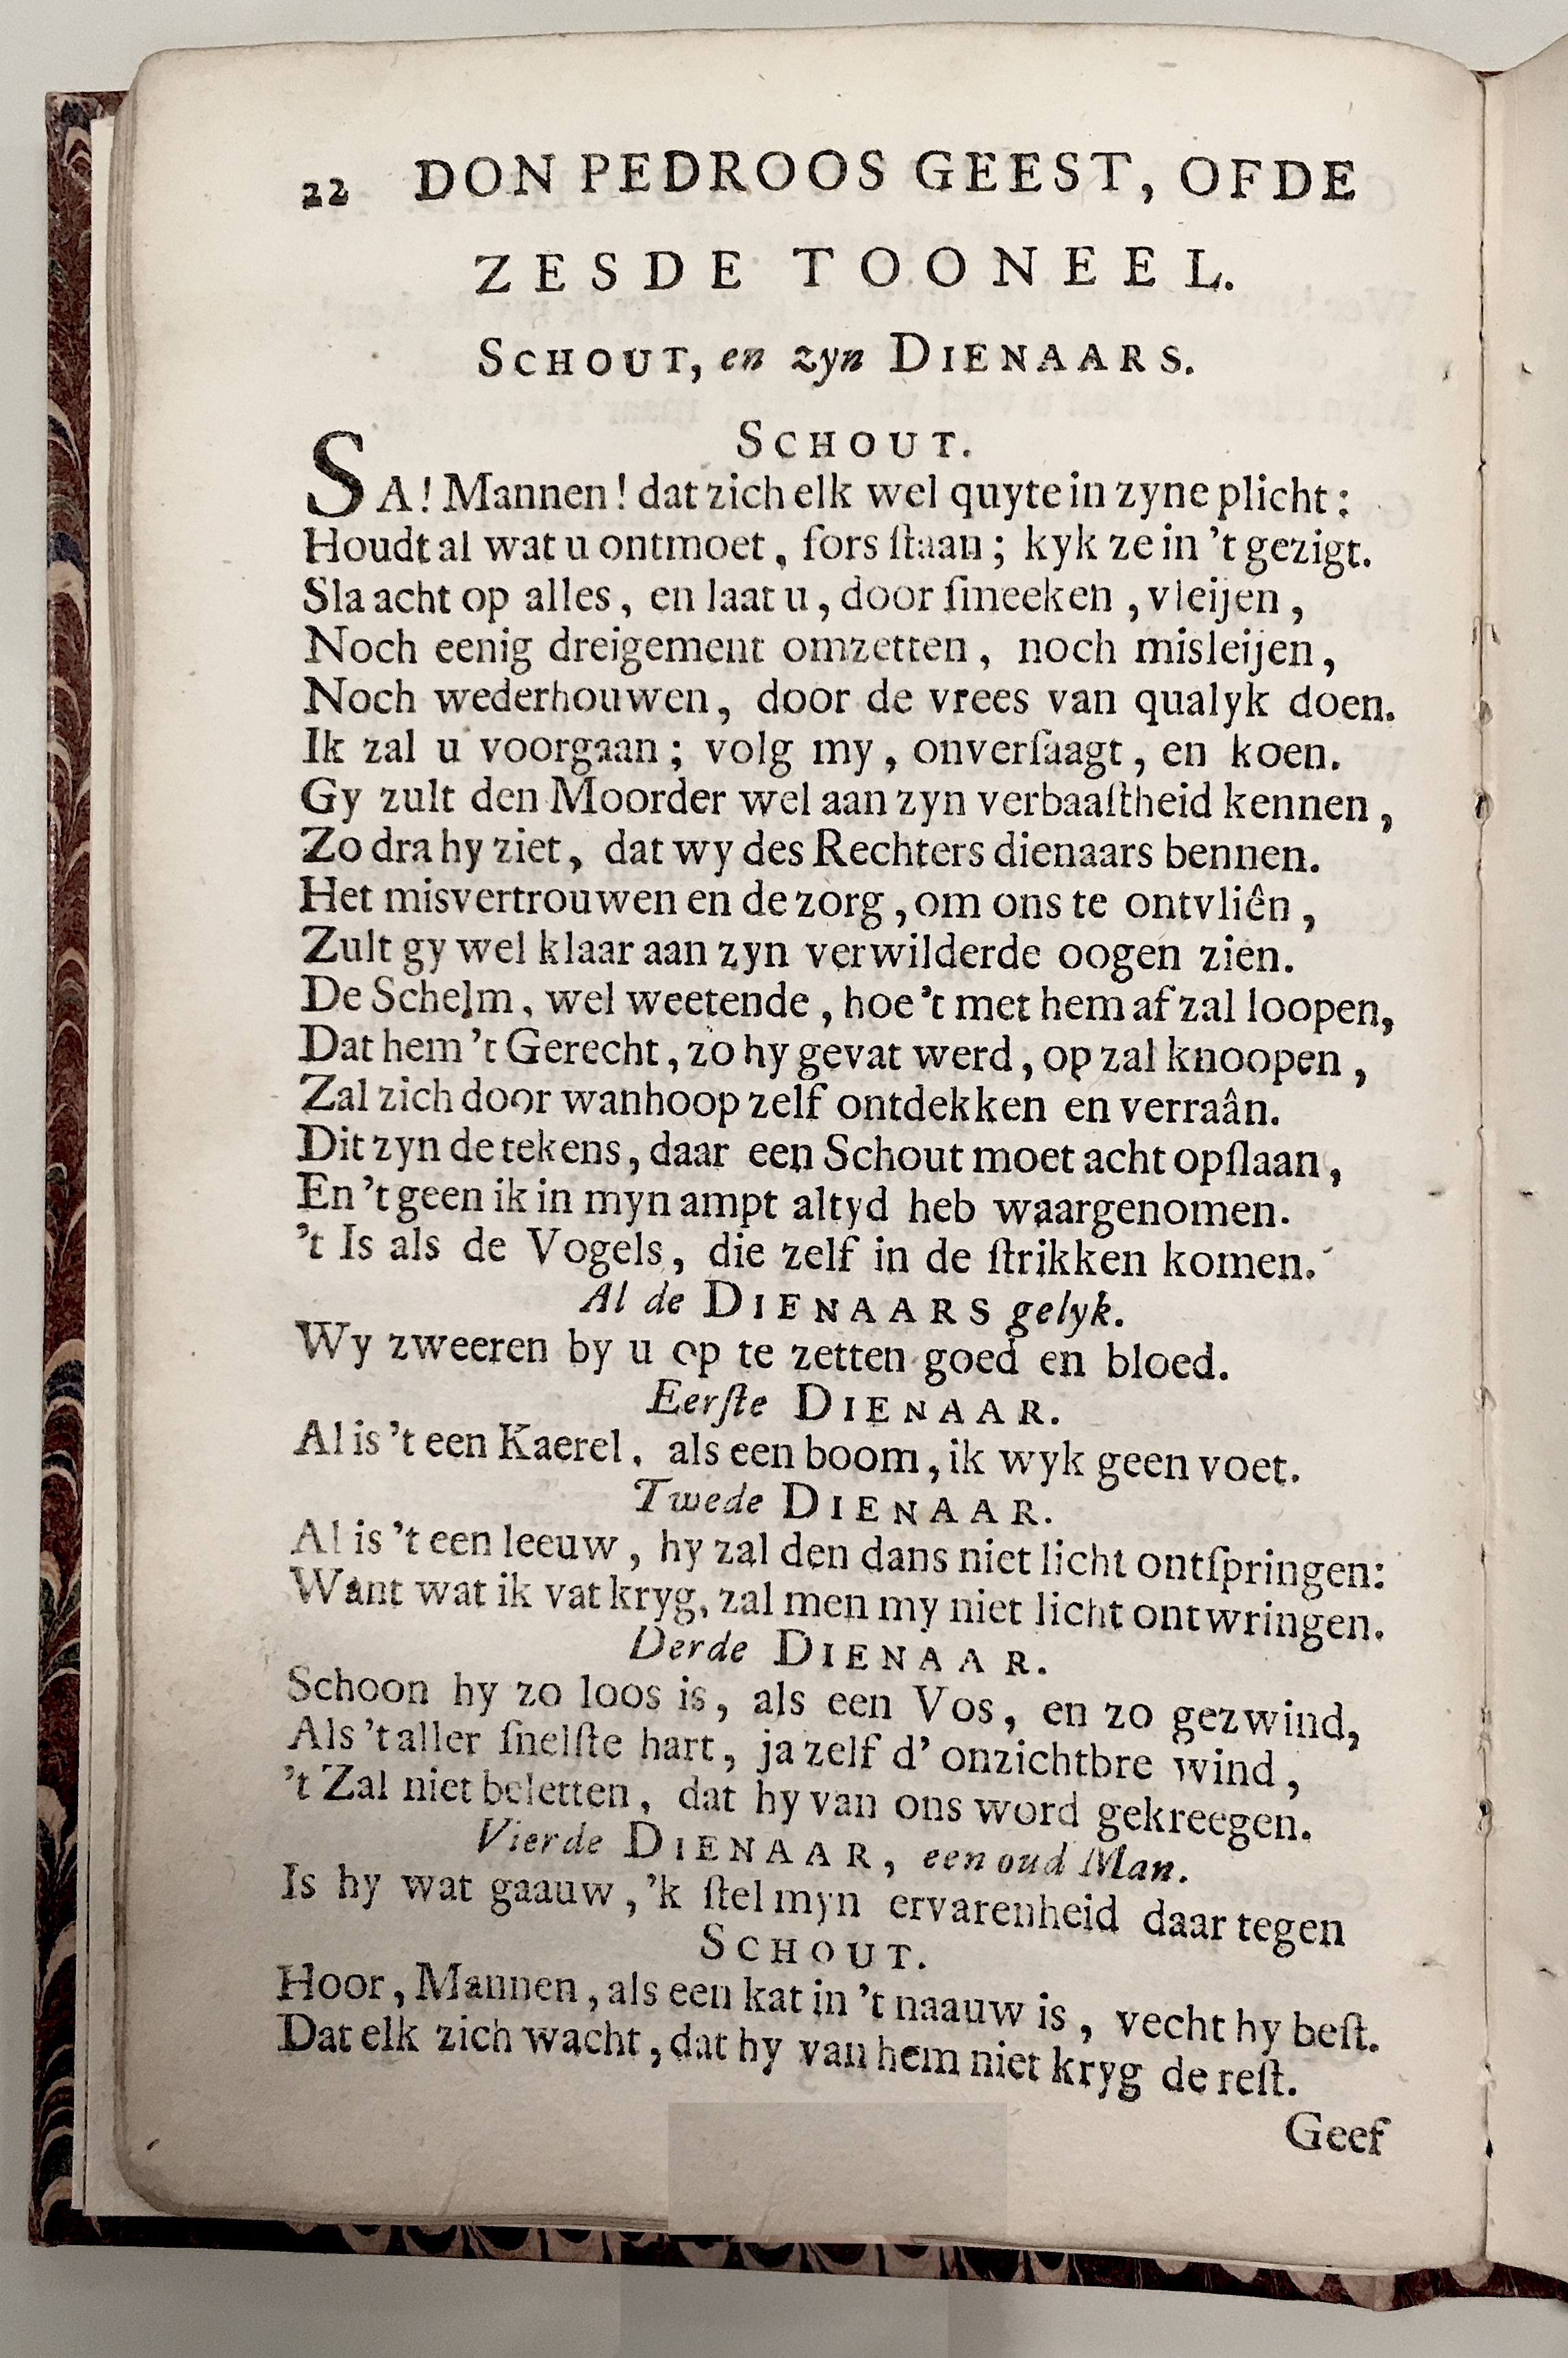 22 DON PEDROOS GEEST, OFDE
ZESDE TOONEEL.
SCHOUT, en zyn DIENAARS.
SCHOUT.
SA! Mannen! dat zich elk wel quyte in zyne plicht:
Houdt al wat u ontmoet, fors ſtaan; kyk ze in 't gezigt.
Sla acht op alles, en laat u, door ſmeeken, vleijen,
Noch eenig dreigement omzetten, noch misleijen,
Noch wederhouwen, door de vrees van qualyk doen.
Ik zal u voorgaan; volg my, onverſaagt, en koen.
Gy zult den Moorder wel aan zyn verbaaſtheid kennen,
Zo dra hy ziet, dat wy des Rechters dienaars bennen.
Het misvertrouwen en de zorg, om ons te ontvliên,
Zult gy wel klaar aan zyn verwilderde oogen zien.
De Schelm, wel weetende, hoe 't met hem af zal loopen,
Dat hem 't Gerecht, zo hy gevat werd, op zal knoopen,
Zal zich door wanhoop zelf ontdekken en verraân.
Dit zyn de tekens, daar een Schout moet acht opſlaan,
En 't geen ik in myn ampt altyd heb waargenomen.
't Is als de Vogels, die zelf in de ſtrikken komen.
Al de DIENAARS gelyk.
Wy zweeren by u op te zetten goed en bloed.
Eerſte DIENAAR.
Al is 't een Kaerel, als een boom, ik wyk geen voet.
Twede DIENAAR.
Al is 't een leeuw, hy zal den dans niet licht ontſpringen:
Want wat ik vat kryg, zal men my niet licht ontwringen.
Derde DIENAAR.
Schoon hy zo loos is, als een Vos, en zo gezwind,
Als 't aller ſnelſte hart, ja zelf d' onzichtbre wind,
't Zal niet beletten, dat hy van ons word gekreegen.
Vierde DIENAAR, een oud Man.
Is hy wat gaauw, 'k ſtel myn ervarenheid daar tegen
SCHOUT.
Hoor, Mannen, als een kat in 't naauw is, vecht hy beſt.
Dat elk zich wacht, dat hy van hem niet kryg de reſt.
Geef